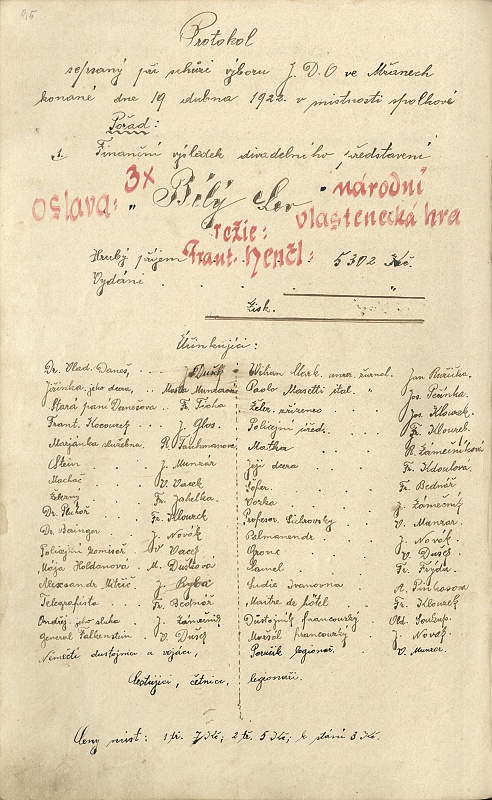 95
Protokol
sepsaný při schůzi výboru J. D. O ve Mřanech
konané dne 19 dubna 1922. v místnosti spolkové
Pořad:
1. Finanční výsledek divadelního představení
oslava: 3x „Bílý Lev" národní
vlastenecká hra
režie:
Hrubý příjem Frant. Henčl: 5302 Kč.
Vydání . . . . . "
Zisk.
Účinkující:
Dr. Vlad. Daneš, . . J. Dušek Wihan Mark. amer. žurnal. Jan Růžička.
Jiřinka, jeho dcera, . . Munzarová Paolo Masetti ital. " Jos. Pečinka.
Stará paní Danešova . Fr. Tichá Železn. zřízenec . . Jos. Klourek
Frant. Kocourek . . J. Glos. Policejní úředn. . . Fr. Klourek.
Marjánka služebná . R. Tauchmanová. Matka . . R. Zámečníková
Stein . . J. Munzar Její dcera . . Fr. Kdoulova.
Macháč . . V. Vacek Šofér . . Fr. Bednář
Železný . . Fr. Jahelka. Vozka . . J. Zámečník
Dr. . . Fr. Klourek Profesor. . V. Munzar.
Dr. Bainger . . J. Novák . . J. Novák.
Policejní komisař . V. Vacek . . V. Dušek
Mája Holdanová . M. Dušková . . Fr. Frýda.
Alexandr Mitrič . J. Rybka Lidie Ivanovna . A.
Telegrafista . . Fr. Bednář Maitre de hôtel . . Fr. Klourek
Ondřej, jeho sluha . J. Zámečník Důstojník francouzský . Old. Soukup.
General Falkenstein . V. Dušek Maršál francouzský . J. Novák.
Němečtí důstojníci a vojáci, Poručík legionář. . V. Munzar.
Cestující, četníci, legionáři.
Ceny míst: 1 tř. 7 Kč; 2 tř. 5 Kč; k stání 3 Kč.